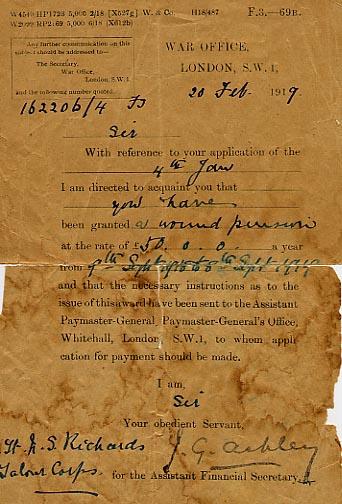 W4549 HP1723 5,000 2/18 [X527g] W. & Co. H18/487 F.3.—69B.
W2099 RP2169 5,000 6/18 [X612b]
Any further communication on this
subject should be addressed to—
The Secretary,
War Office,
London, S.W.1,
and the following number quoted.
WAR OFFICE,
LONDON, S.W.1,
20 Feb. 1919
162206/4
Sir
With reference to your application of the
4th Jan
I am directed to acquaint you that
you have
been granted a wound pension
at the rate of £50. 0. 0. a year
from 9th Sept 1918 to Sept 1919
and that the necessary instructions as to the
issue of this award have been sent to the Assistant
Paymaster-General, Paymaster-General's Office,
Whitehall, London, S.W.1, to whom appli
cation for payment should be made.
I am,
Sir
Your obedient Servant,
Lt. N. S. Richards
J. G. Ashley
Labour Corps.
for the Assistant Financial Secretary.